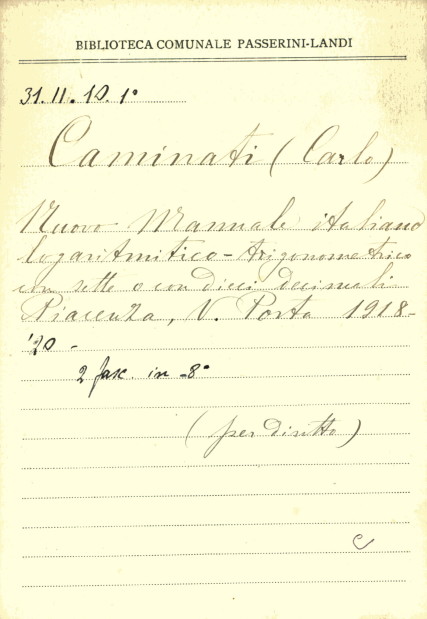 BIBLIOTECA COMUNALE PASSERINI-LANDI
31. II. 10. 1°
Caminati (Carlo)
Nuovo Manuale italiano
logaritmitico-trigonometrico
con sette o con dieci decimali
Piacenza, V. Porta 1918-
'20 -
2 fasc. in -8°
(per diritto)
C